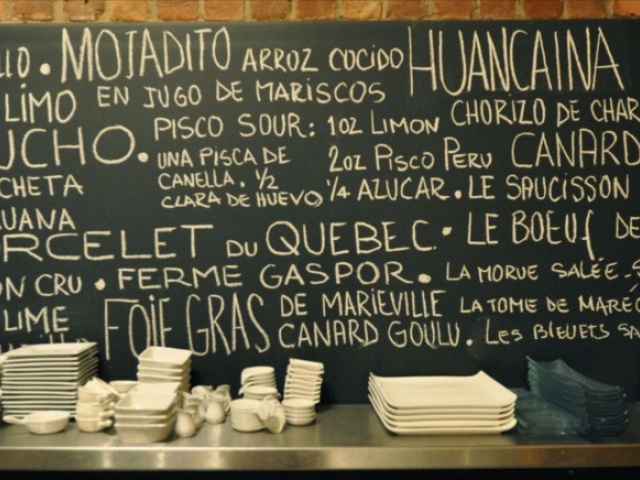 LLO • MOJADITO ARROZ COCIDO HUANCAINA
LIMO EN JUGO DE MARISCOS CHORIZO DE CHAR
UCHO • PISCO SOUR: 1OZ LIMON CANARD
CHETA UNA PISCA DE 2OZ PISCO PERU
CANELLA. 1/2 1/4 AZUCAR. LE SAUCISSON
UANA CLARA DE HUEVO,
ORCELET DU QUEBEC. • LE BOEUF DE
ON CRU • FERME GASPOR. LA MORUE SALÉE
LIME FOIE GRAS DE MARIEVILLE LA TOME DE MARÉ
CANARD GOULU. LES BLEUETS SA